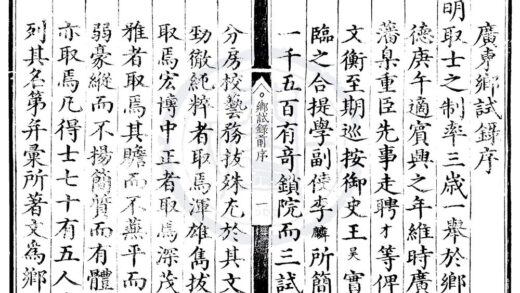 廣東鄉試錄序
明取士之制率三歲一舉於鄉
德庚午適賓興之年維時廣
藩臬重臣先事走聘才等俾
文衡至期巡按御史王昊實
臨之合提學副使李麟所簡
一千五百有奇鎖院而三試
鄉試錄前序
一
分房校藝務拔殊尤於其文
勁徹純粹者取焉渾雄雋拔
取焉宏博中正者取焉深茂
雅者取焉其贍而不蕪平而
弱豪縱而不揚簡質而有體
亦取焉凡得士七十有五人
列其名第弁彙所著文為鄉